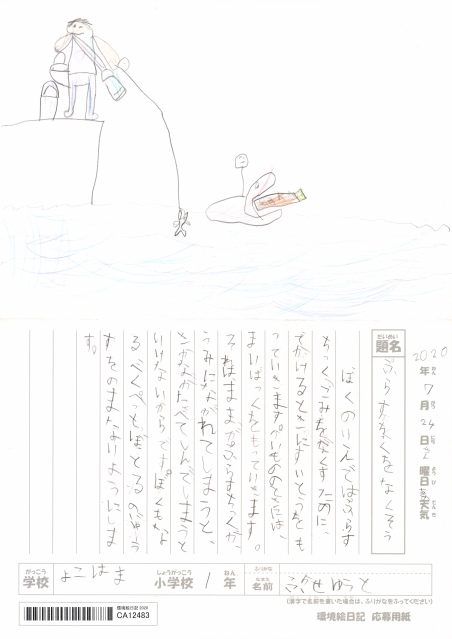 2020年7月24日 曜日 天気
題名 ぷらすちっくをなくそう
ぼくのいえではぷらす
ちっくごみをなくすために、
でかけるときにすいとうをも
っていきます。かいものときには、
まいばっくをもっていきます。
ぷらすちっくが、
うみにながれてしまうと、
さかながたべてしんでしまうと
いけないからです。ぼくも、な
るべくぺっとぼとるのじゅう
すをのまないようにしま
す。
がっこう 学校 よこはま しょうがっこう 小学校 1 ねん 年
ふりがな
なまえ 名前 ゆうと
(漢字で名前を書いた場合は、ふりがなをふってください)
環境絵日記 2020
CA12483
環境絵日記 応募用紙